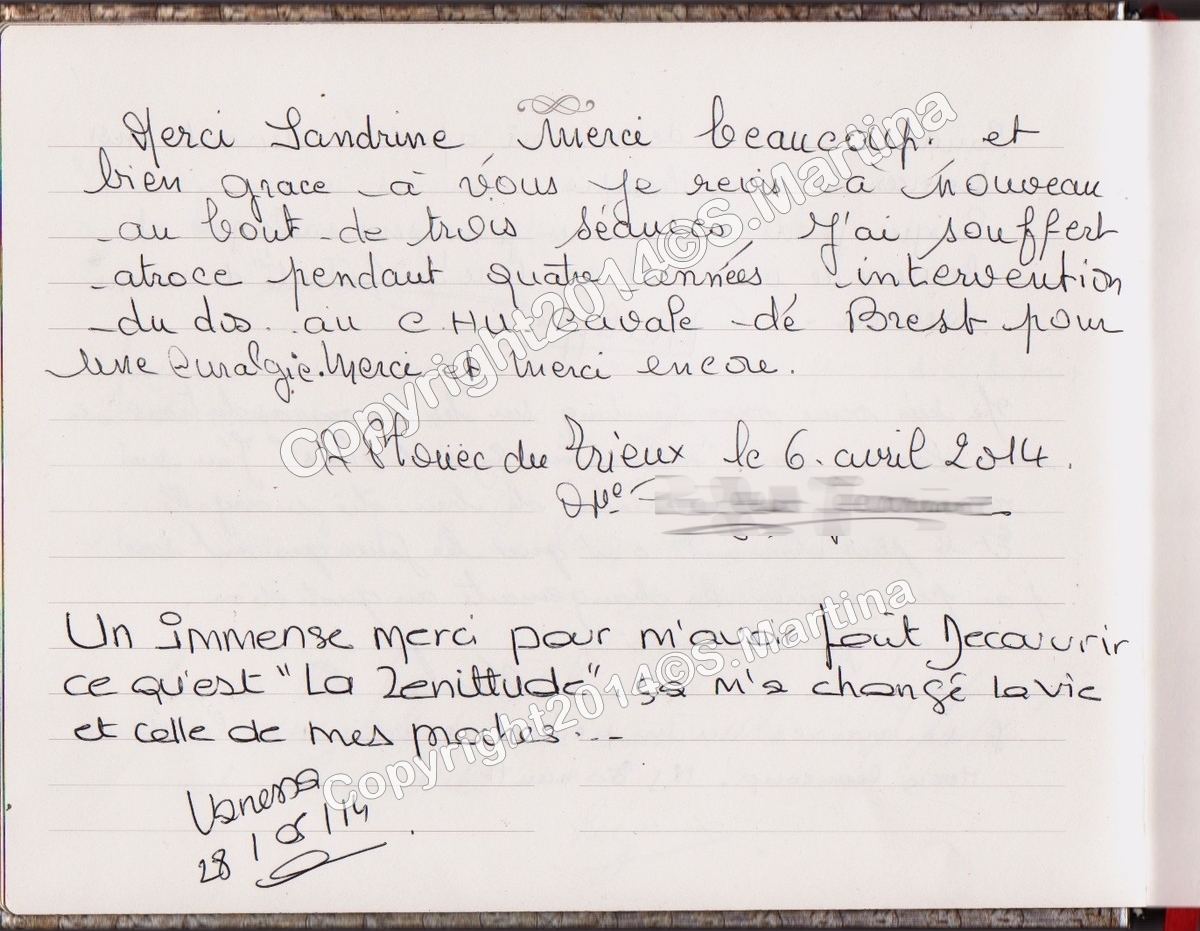 Merci Sandrine Merci beaucoup. et
bien grace à vous je revis à nouveau
au bout de trois séances. J'ai souffert
atroce pendant quatre années intervention
du dos. au C.HU Cavale de Brest pour
une Curalgie. Merci et Merci encore.
A Plouëc du Trieux le 6. avril 2014.
Mme
Un immense merci pour m'avoir fait Decouvrir
ce qu'est "La Zenittude", ça m'a changé la vie
et celle de mes proches...
Vanessa
28/05/14
Copyright2014©S.Martina
Copyright2014©S.Martina